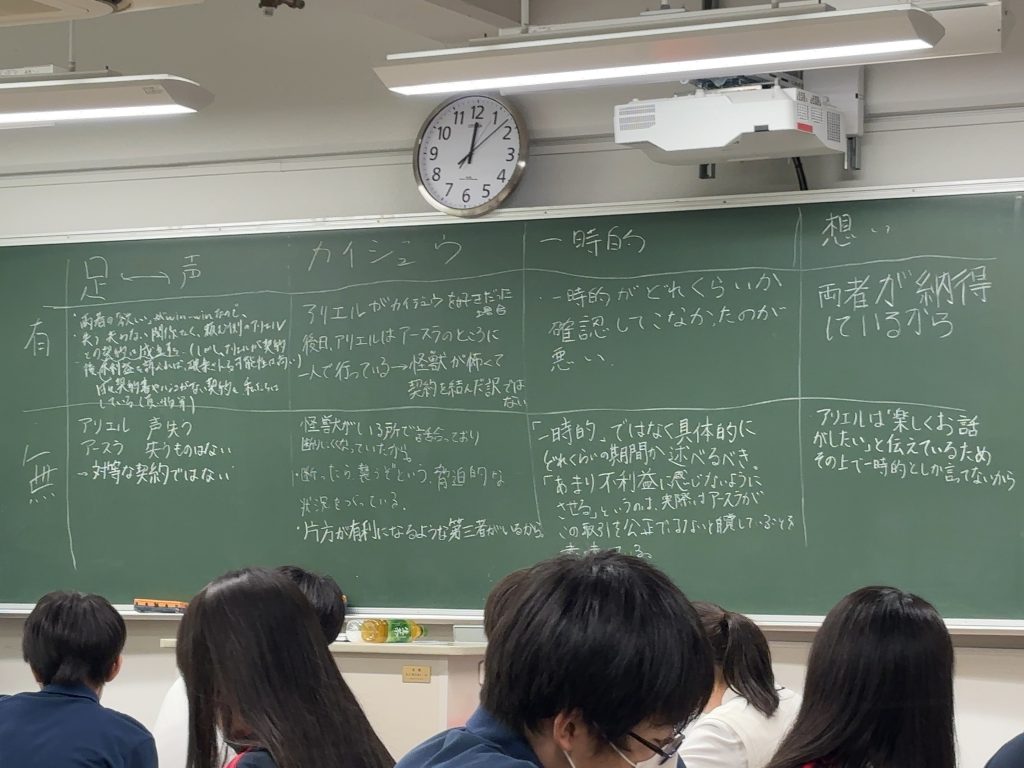 足 ←→ 声
カイジュウ
一時的
想い
有
・両者の欲しい、がwin-winなので、
失う失わない関係なく、頼む側のアリエル
との契約は成立した(しかし、アリエルが契約
アリエルがカイジュウを好きだった
場合
後日アリエルはアースラのところに
一人で行っている→怪獣が怖くて
契約を結んだ訳では
ない
・一時的がどれくらいか
確認してこなかったのが
悪い.
両者が納得
しているから
無
アリエル 声失う
アースラ 失うものはない
→対等な契約ではない
怪獣がいる所で話合っており
断りにくくなっていたから。
・断ったら襲うぞという、脅迫的な
状況をつくっている.
・片方が有利になるような第三者がいるから
「一時的」ではなく具体的に
どれくらいの期間か述べるべき。
「あまり不利益に感じないように
させる」というのは、実際はアースラが
この取引を公正でないと
アリエルは"楽しくお話
がしたい"と伝えているため
その上で一時的としか言ってないから
12
1
2
3
4
5
6
7
8
9
10
11